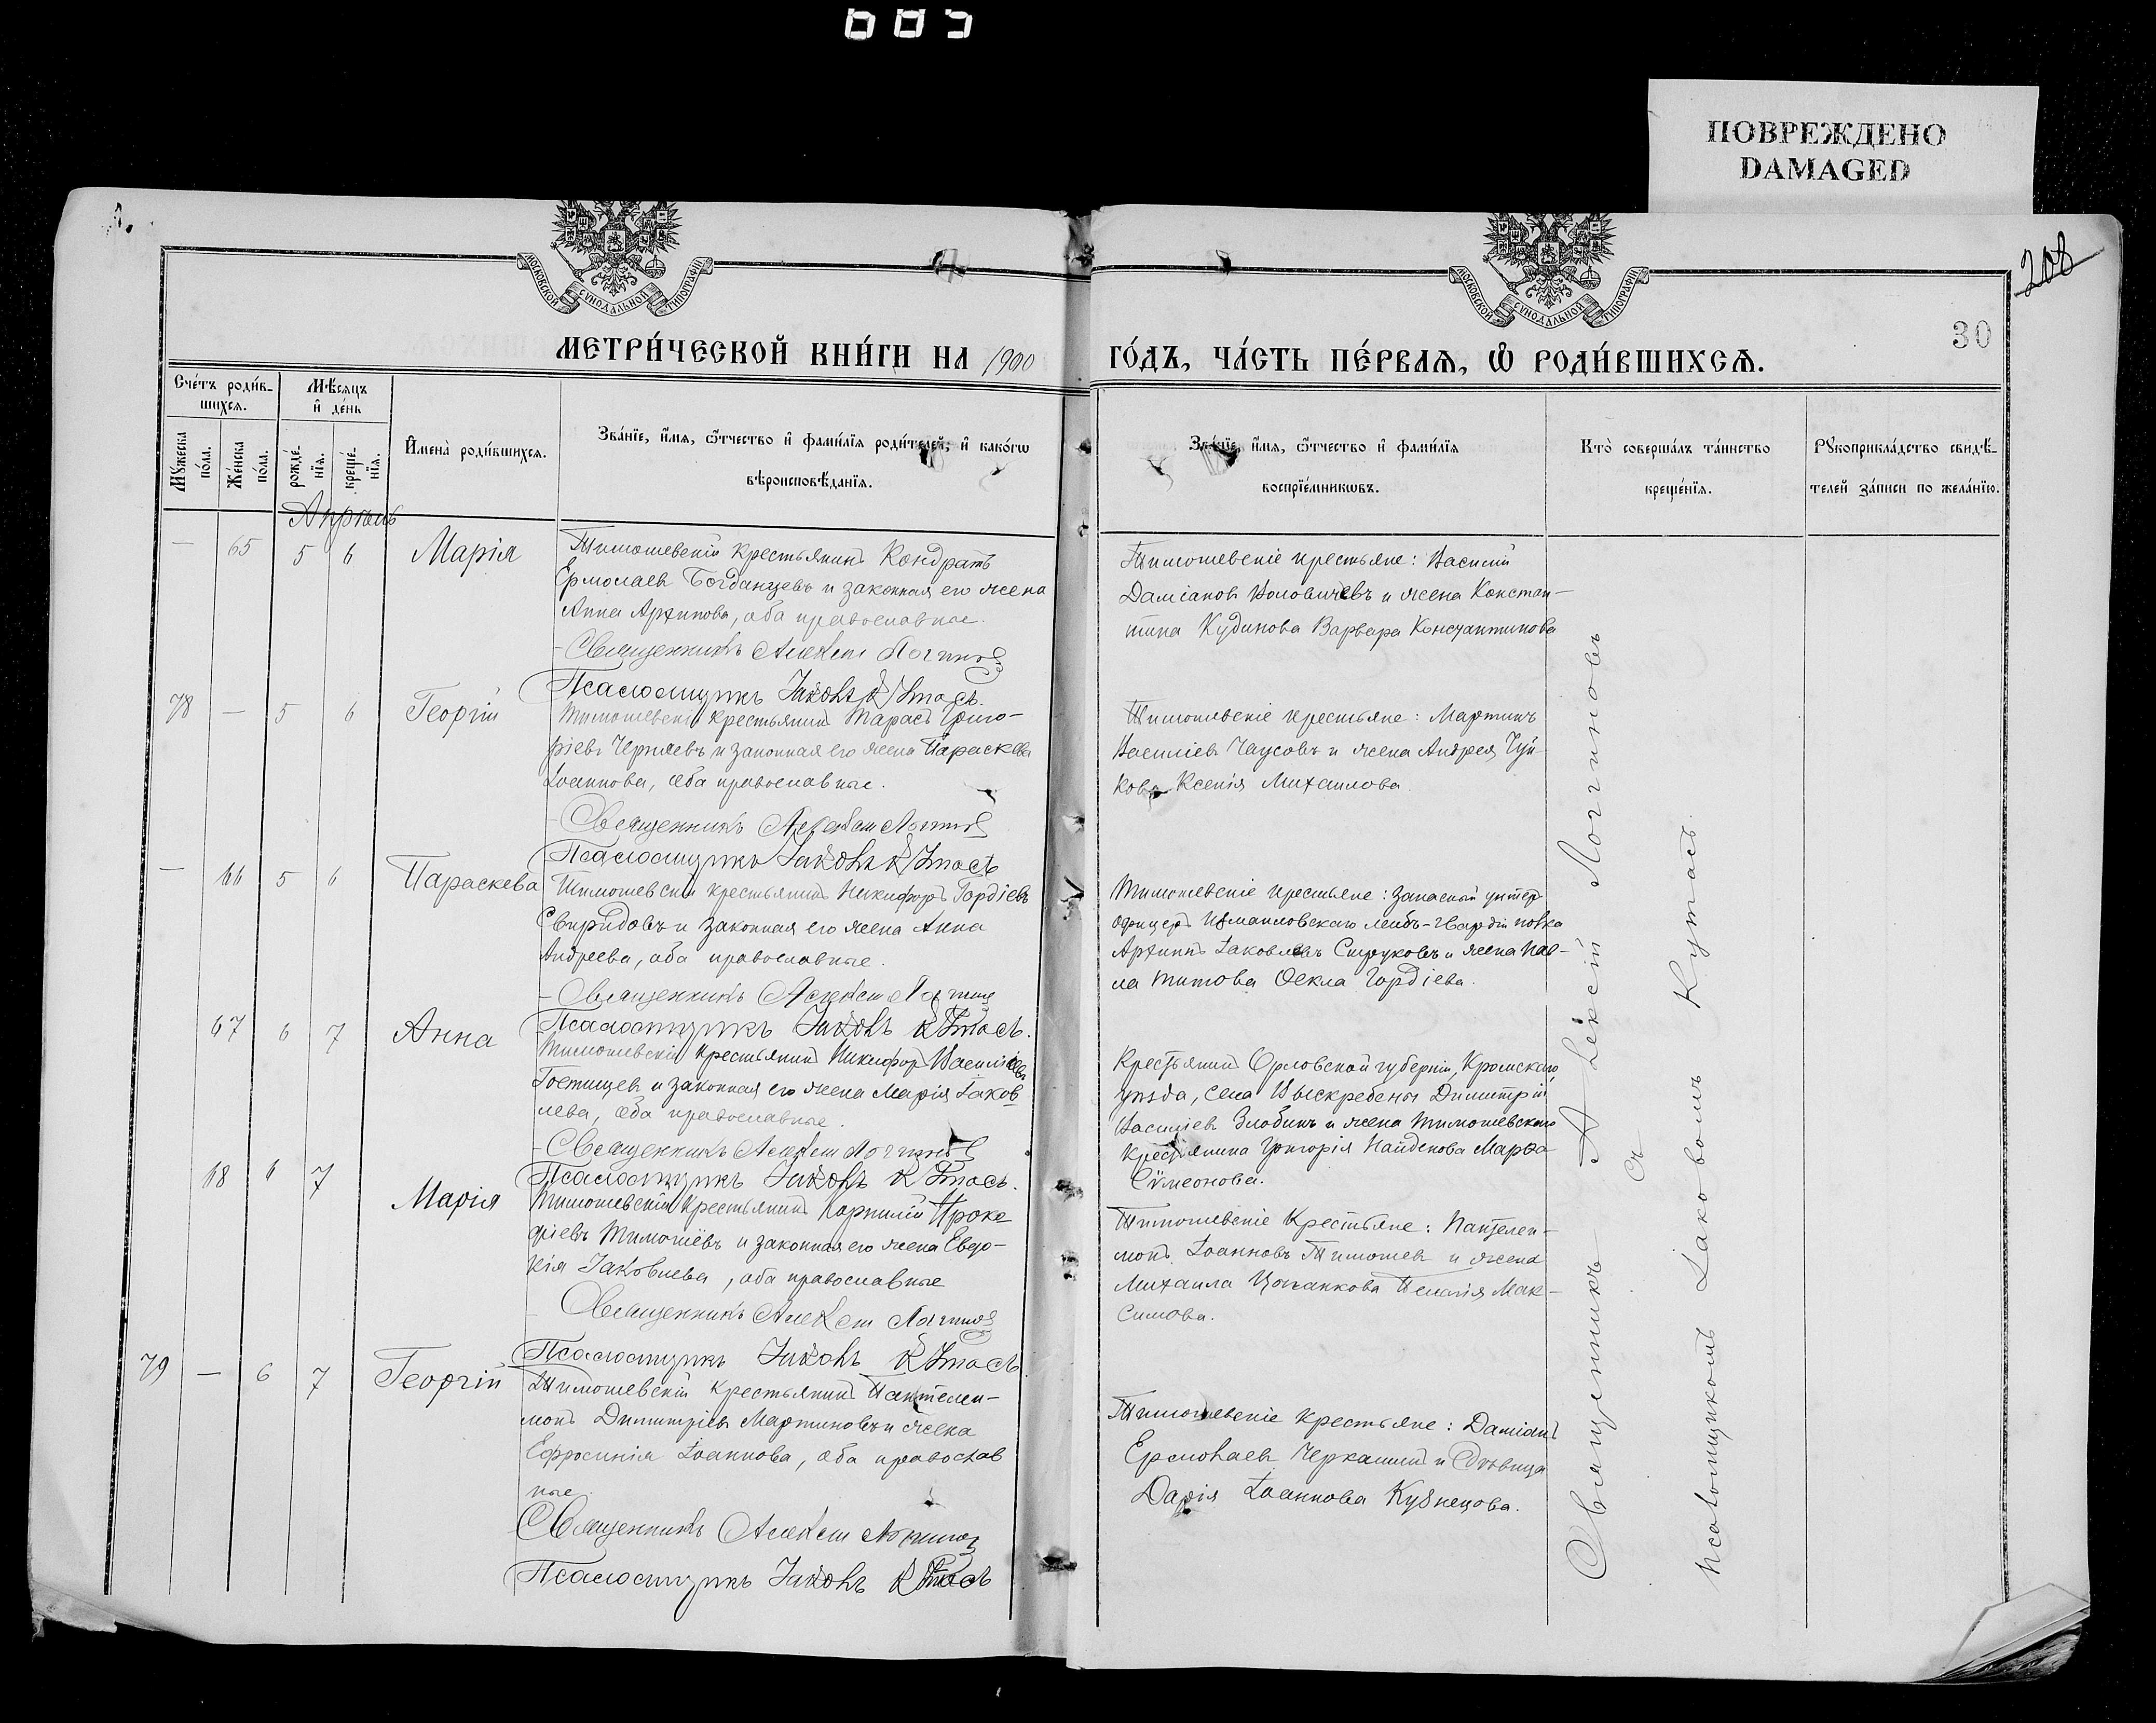 603
ПОВРЕЖДЕНО
DAMAGED
208
30
МОСКОВСКОЙ СѴНОДАЛЬНОЙ ТИПОГРАФІИ
МОСКОВСКОЙ СѴНОДАЛЬНОЙ ТИПОГРАФІИ
МЕТРИ́ЧЕСКОЙ КНИ́ГИ НА 1900 ГО́ДЪ, ЧА́СТЬ ПЕ́РВАЯ, Ѡ РОДИ́ВШИХСЯ.
Сче́тъ роди́в-
шихся.
Мѣсяцъ
и де́нь
Мꙋжеска по́ла.
Же́нска по́ла.
рожде́-
нїя.
креще́-
нїя.
И҆мена̀ роди́вшихся.
Зва́нїе, и҆мя, ѻ҆тчество и҆ фами́лїя роди́телей, и҆ како́гѡ
вѣроисповѣданїя.
Зва́нїе, и҆мя, ѻ҆тчество и҆ фами́лїя
воспрїе́мникѡвъ.
Кто̀ соверша́лъ та́инство
креще́нїя.
Рꙋкоприкла́дство свидѣ-
телей за́писи по жела́нїю.
Апрѣль
— 65 5 6 Марія
Тимошевскій крестьянинъ Кондратъ
Ермолаевъ Богданцевъ и законная его жена
Анна Архипова, оба православные.
Священникъ Алексій Логиновъ
Псаломщикъ Іаковъ Кутасъ.
Тимошевскіе крестьяне: Василій
Даміановъ Воловичевъ и жена Констан-
тина Кудинова Варвара Константинова
78 — 5 6 Георгій
Тимошевскій крестьянинъ Тарасъ Григо-
ріевъ Черняевъ и законная его жена Параскева
Іоаннова, оба православные.
Священникъ Алексій Логиновъ
Псаломщикъ Іаковъ Кутасъ
Тимошевскіе крестьяне: Мартинъ
Василіевъ Чаусовъ и жена Андрея Чуй-
кова Ксенія Михаилова.
— 66 5 6 Параскева
Тимошевскій крестьянинъ Никифоръ Гордіевъ
Свиридовъ и законная его жена Анна
Андреева, оба православные.
Священникъ Алексій Логиновъ
Псаломщикъ Іаковъ Кутасъ.
Тимошевскіе крестьяне: запасный унтеръ
офицеръ Измаиловскаго лейбъ-гвардіи полка
Архипъ Іаковлевъ Струковъ и жена Пав-
ла Титова Ѳекла Гордіева.
67 6 7 Анна
Тимошевскій крестьянинъ Никифоръ Василіевъ
Гостищевъ и законная его жена Марія Іаков
лева, оба православные.
Священникъ Алексій Логиновъ
Псаломщикъ Іаковъ Кутасъ.
Крестьянинъ Орловской губерніи, Кромскаго
уѣзда, села Выскребены Димитрій
Василіевъ Злобинъ и жена Тимошевскаго
крестьянина Григорія Найденова Марѳа
Сѵмеонова.
68 6 7 Марія
Тимошевскій крестьянинъ Корнилій Проко
фіевъ Тимошевъ и законная его жена Евдо-
кія Іаковлева, оба православные
Священникъ Алексій Логиновъ
Псаломщикъ Іаковъ Кутасъ.
Тимошевскіе крестьяне: Пантелеи-
монъ Іоанновъ Тимошевъ и жена
Михаила Пелагія Мак-
симова.
79 — 6 7 Георгій
Тимошевскій крестьянинъ Пантелеи-
монъ Димитріевъ Мартиновъ и жена
Ефросинія Іоаннова, оба православ
ные.
Священникъ Алексій Логиновъ
Псаломщикъ Іаковъ Кутасъ
Тимошевскіе крестьяне: Даміанъ
Ермолаевъ Черкашинъ и дѣвица
Дарія Іоаннова Кузнецова.
Священникъ Алексій Логиновъ
съ
псаломщикомъ Іаковомъ Кутасъ.